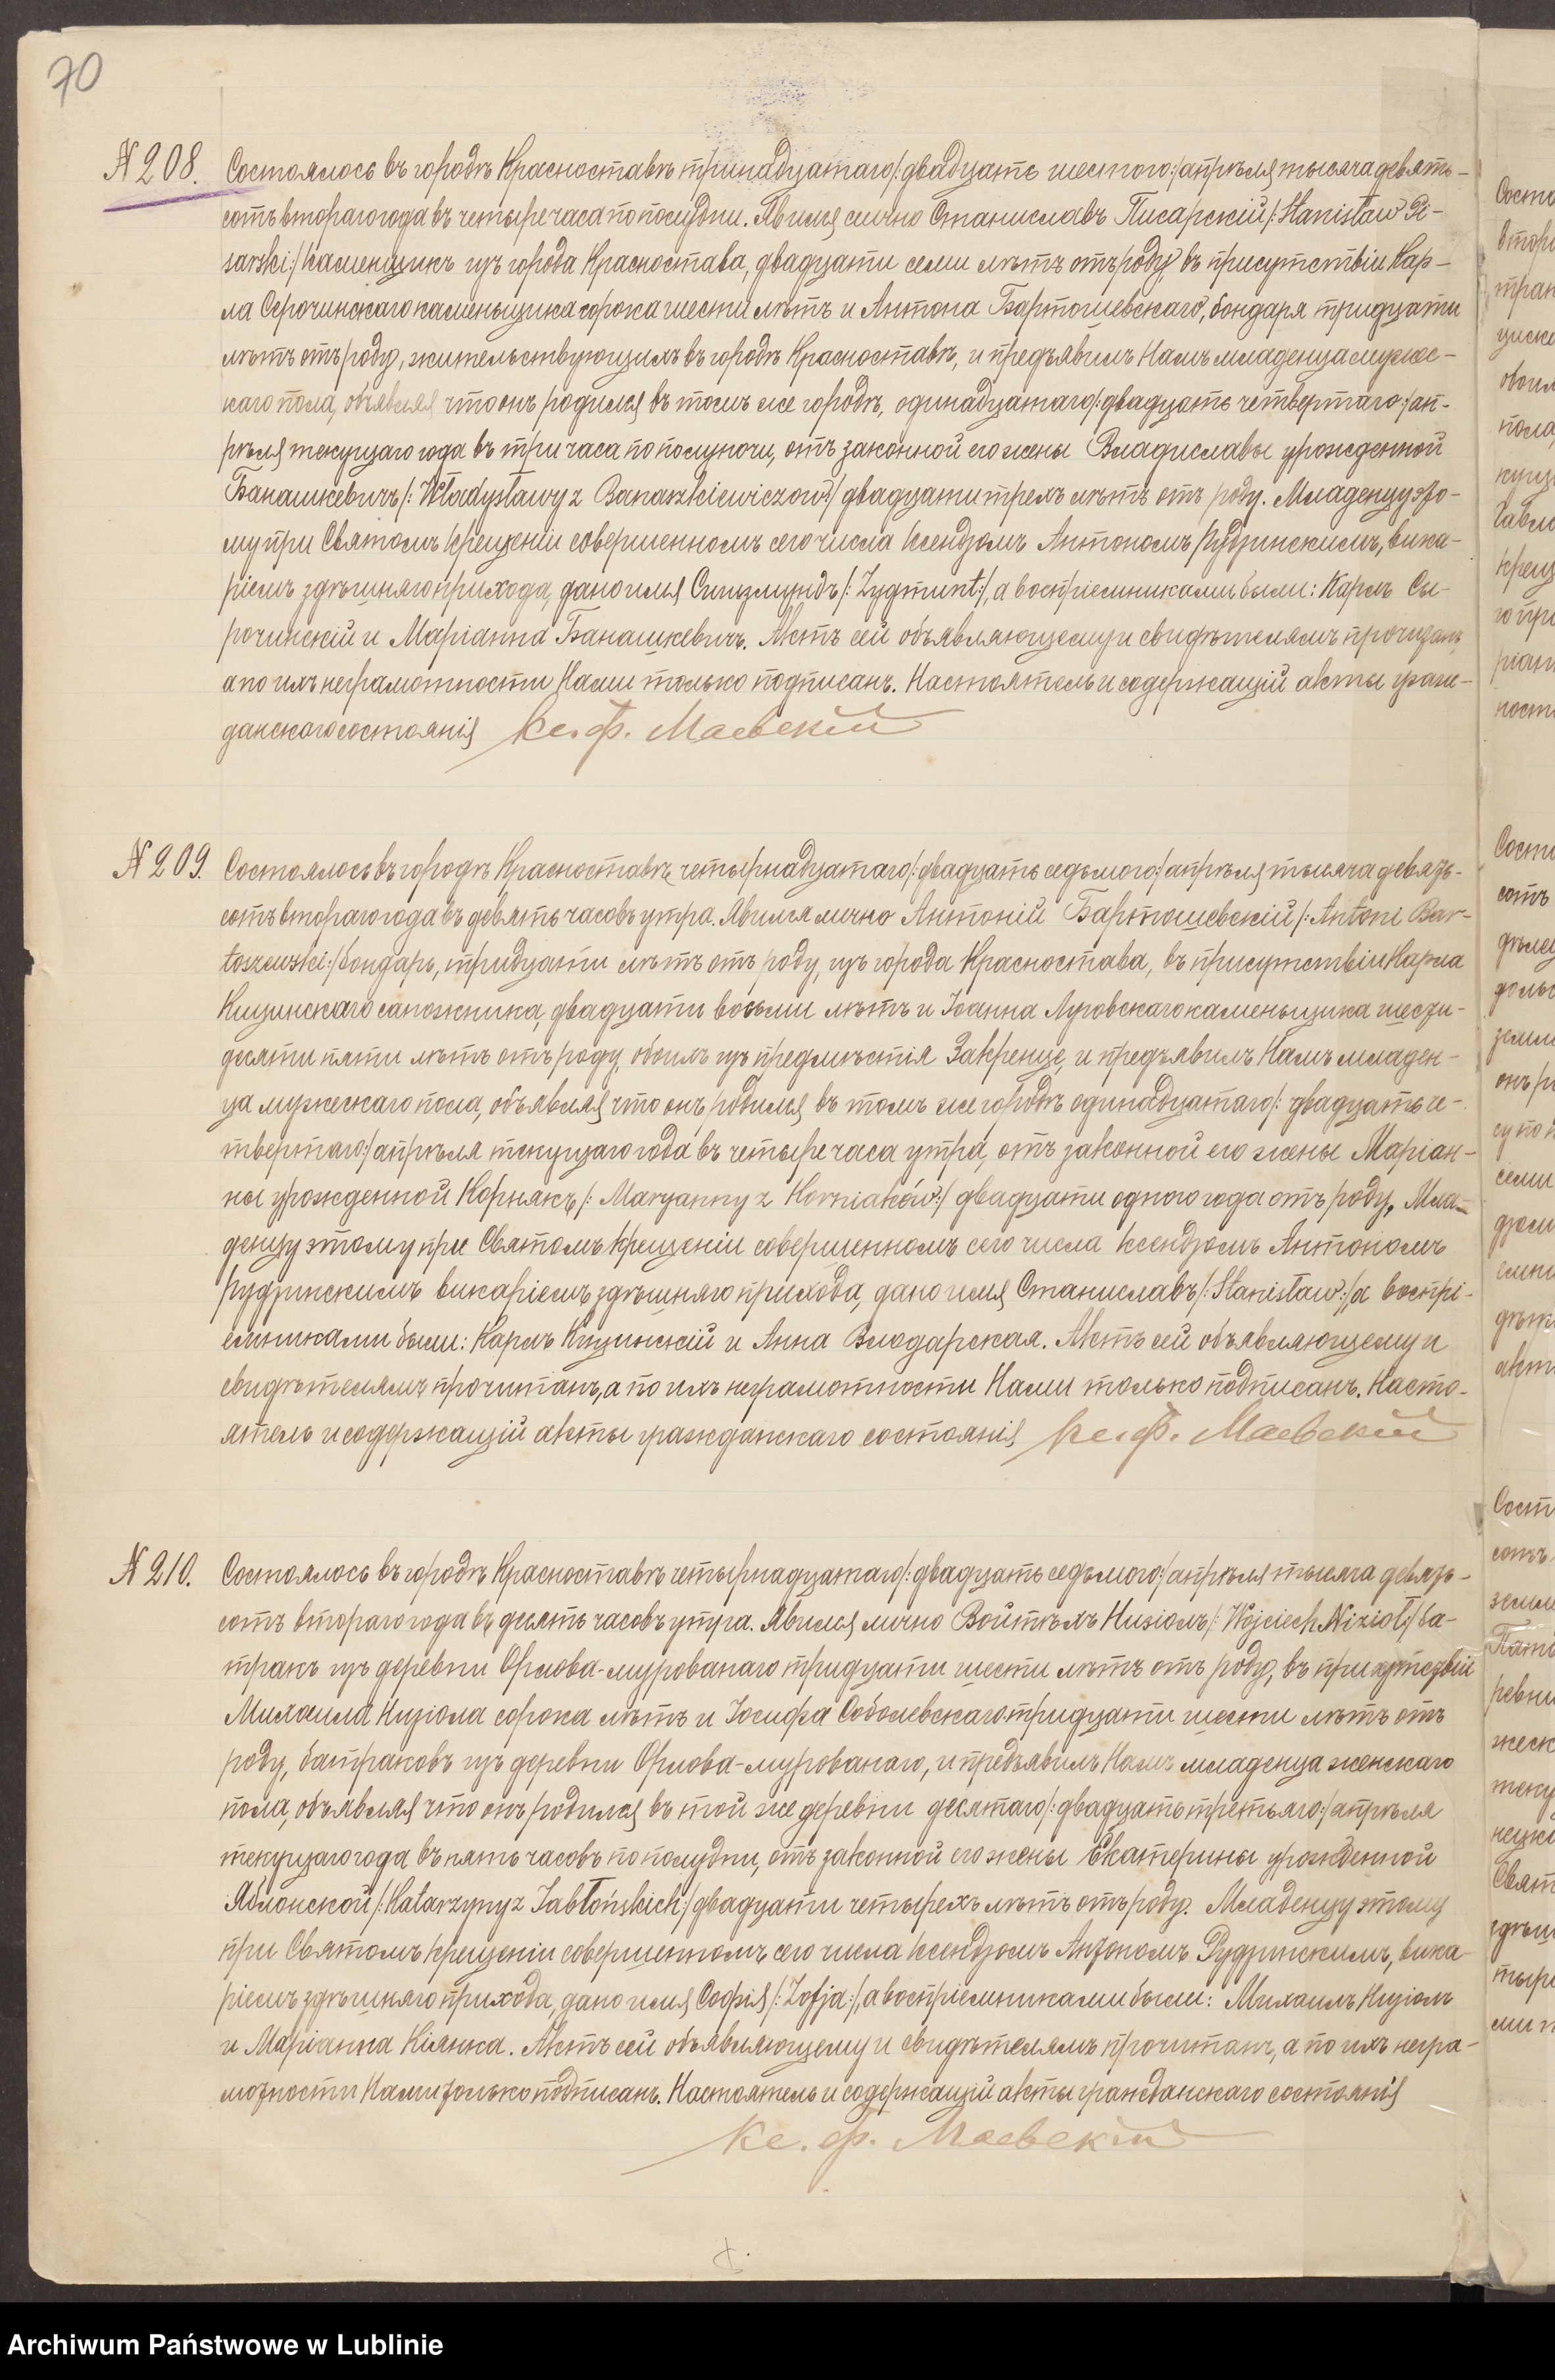 70
№ 208. Состоялось въ городѣ Красноставѣ тринадцатаго /:двадцать шестого:/ апрѣля тысяча девять-
сотъ втораго года въ четыре часа по полудни. Явился лично Станиславъ Писарскій /: Stanisław Pi-
sarski:/ каменщикъ изъ города Красностава, двадцати семи лѣтъ отъ роду, въ присутствіи Кар-
ла Сырочинскаго каменьщика сорока шести лѣтъ и Антона Бартошевскаго, бондаря тридцати
лѣтъ отъ роду, жительствующихъ въ городѣ Красноставѣ, и предъявилъ Намъ младенца мужес-
каго пола, объявляя что онъ родился въ томъ же городѣ, одинадцатаго /:двадцать четвертаго:/ ап-
рѣля текущаго года въ три часа по полуночи, отъ законной его жены Владиславы урожденной
Банашкевичъ /: Władysławy z Banaszkiewiczow:/ двадцати трехъ лѣтъ отъ роду. Младенцу это-
му при Святомъ Крещеніи совершенномъ сего числа Ксендзомъ Антономъ Рудзинскимъ, вика-
ріемъ здѣшняго прихода, дано имя Сигизмундъ /: Zygmunt:/, а воспріемниками были: Карлъ Сы-
рочинскій и Маріанна Банашкевичъ. Актъ сей объявляющему и свидѣтелямъ прочитанъ,
а по ихъ неграмотности Нами только подписанъ. Настоятель и содержащій акты граж-
данскаго состоянія Кс. Ф. Маевскій
№ 209. Состоялось въ городѣ Красноставѣ, четырнадцатаго /:двадцать седьмого:/ апрѣля тысяча девять-
сотъ втораго года въ девять часовъ утра. Явился лично Антоній Бартошевскій /: Antoni Bar-
toszewski:/ бондарь, тридцати лѣтъ отъ роду, изъ города Красностава, въ присутствіи Карла
Кицинскаго сапожника, двадцати восьми лѣтъ и Іоанна Луговскаго каменьщика шести-
десяти пяти лѣтъ отъ роду, обоихъ изъ предмѣстія Закренце, и предъявилъ Намъ младен-
ца мужескаго пола, объявляя что онъ родился въ томъ же городѣ одинадцатаго /: двадцать че-
твертаго:/ апрѣля текущаго года въ четыре часа утра, отъ законной его жены Маріан-
ны урожденной Корнякъ /: Maryanny z Korniaków:/ двадцати одного года отъ роду. Мла-
денцу этому при Святомъ Крещеніи совершенномъ сего числа Ксендзомъ Антономъ
Рудзинскимъ викаріемъ здѣшняго прихода, дано имя Станиславъ /: Stanisław:/ а воспрі-
емниками были: Карлъ Кицинскій и Анна Влодарская. Актъ сей объявляющему и
свидѣтелямъ прочитанъ, а по ихъ неграмотности Нами только подписанъ. Насто-
ятель и содержащій акты гражданскаго состоянія Кс. Ф. Маевскій
№ 210. Состоялось въ городѣ Красноставѣ четырнадцатаго /:двадцать седьмого:/ апрѣля тысяча девять-
сотъ втораго года въ десять часовъ утра. Явился лично Войтѣхъ Низіолъ /: Wojciech Nizioł:/ ба-
тракъ изъ деревни Орлова-мурованаго тридцати шести лѣтъ отъ роду, въ присутствіи
Михаила Низіола сорока лѣтъ и Іосифа Соболевскаго тридцати шести лѣтъ отъ
роду, батраковъ изъ деревни Орлова-мурованаго, и предъявилъ Намъ младенца женскаго
пола, объявляя что онъ родился въ той же деревни десятаго /:двадцать третьяго:/ апрѣля
текущаго года въ пять часовъ по полудни, отъ законной его жены Екатерины урожденной
Яблонской /: Katarzyny z Jabłońskich:/ двадцати четырехъ лѣтъ отъ роду. Младенцу этому
при Святомъ Крещеніи совершенномъ сего числа Ксендзомъ Антономъ Рудзинскимъ, вика-
ріемъ здѣшняго прихода, дано имя Софія /: Zofja:/, а воспріемниками были: Михаилъ Низіолъ
и Маріанна Кіянка. Актъ сей объявляющему и свидѣтелямъ прочитанъ, а по ихъ негра-
мотности Нами только подписанъ. Настоятель и содержащій акты гражданскаго состоянія
Кс. Ф. Маевскій
Archiwum Państwowe w Lublinie